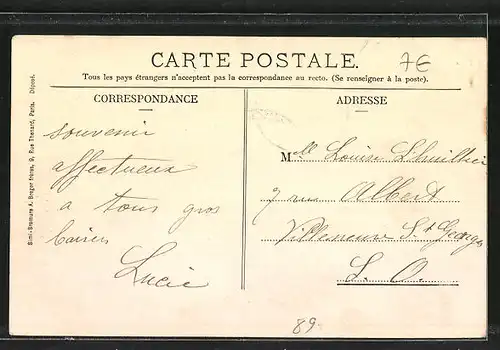 CARTE POSTALE.
7€
Tous les pays étrangers n'acceptent pas la correspondance au recto. (Se renseigner à la poste).
CORRESPONDANCE
ADRESSE
Simi-Bromure A. Breger frères, 9, Rue Thenard, Paris. Déposé.
souvenir
affectueux
a tous gros
baisers
Lucie
Melle Louise Lhuillier
7 rue Albert
Villeneuve St Georges
S. O.
89